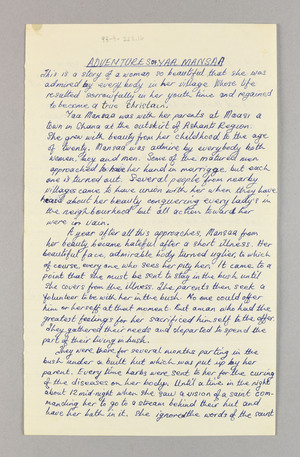 ADVENTURES OF YAA MANSAA
This is a story of a woman so beautiful that she was
admired by every body in her village whose life
resulted sorrowfully in her youth time and regained
to become a true christain.
Yaa Mansaa was with her parents at Maasi a
town in Ghana at the outskirt of Ashanti Region.
She grew with beauty from her childhood to the age
of twenty. Mansaa was admire by everybody both
women, boy and men. Some of the matured men
approached to have her hand in marriage but each
one is turned out. Several people from nearby
villages came to have union with her when they have
heard about her beauty conquering every lady's in
the neighbourhood but all action toward her
were in vain.
A year after all this approaches, Mansaa from
her beauty became hateful after a short illness. Her
beautiful face, admirable body turned uglier, to which
of course, every one who sees her pity her. It came to a
point that she must be sent to stay in the bush until
she covers from the illness. The parents then seek a
volunteer to be with her in the bush. No one could offer
him or herself at that moment but a man who had the
greatest feelings for her sacrificed himself to the offer.
They gathered their needs and departed to spend the
part of their living in bush.
They were there for several months parting in the
bush under a built hut which was put up by her
parent. Every time harbs were sent to her for the curing
of the diseases on her body. Until a time in the night
about 12 mid-night when she saw a vision of a saint com-
manding her to go to a stream behind their hut and
have her bath in it. She ignored the words of the saint